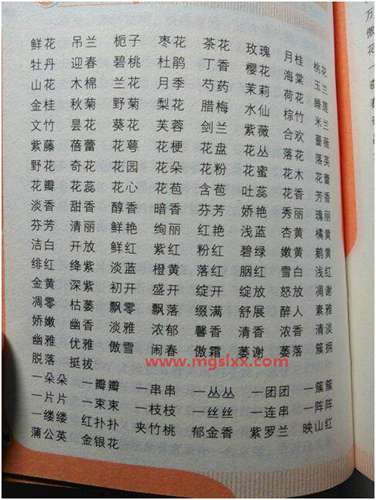 鲜花 吊兰 栀子 枣花 茶花 玫瑰 月桂 桃花
牡丹 迎春 碧桃 杜鹃 丁香 樱花 海棠 玉兰
山花 木棉 兰花 月季 芍药 茉莉 荷花 睡莲
金桂 秋菊 野菊 梨花 腊梅 水仙 棕竹 米兰
文竹 昙花 葵花 芙蓉 剑兰 紫薇 合欢 蔷薇
紫藤 蓓蕾 花萼 花梗 花盘 花丛 落花 落英
野花 奇花 花园 花朵 花粉 花蜜 花木 花蕾
花瓣 花蕊 花心 花苞 含苞 吐蕊 花香 芳香
淡香 甜香 醇香 暗香 芬芳 娇艳 秀丽 瑰丽
芬芳 清丽 鲜艳 绚丽 红艳 浅蓝 杏黄 橘黄
洁白 开放 鲜红 紫红 粉红 碧绿 嫩黄 鹅黄
绯红 绛紫 淡蓝 橙黄 落红 胭红 雪白 浅红
金黄 深紫 初开 盛开 绽开 绽放 怒放 凋谢
凋零 枯萎 飘零 飘落 缀满 舒展 醉人 素雅
娇嫩 幽香 淡雅 浓郁 馨香 清香 浓香 清淡
幽雅 优雅 傲雪 闹春 傲霜 萎谢 萎落 簇拥
脱落 挺拔
www.mgslxx.com
一朵朵 一瓣瓣 一串串 一丛丛 一团团 一簇簇
一片片 一束束 一枝枝 一丝丝 一连串 一阵阵
一缕缕 红扑扑 夹竹桃 郁金香 紫罗兰 映山红
蒲公英 金银花